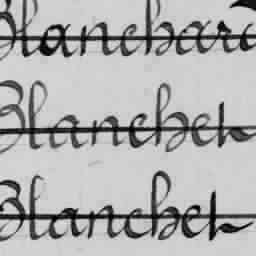 Blanchard
Blanchet
Blanchet